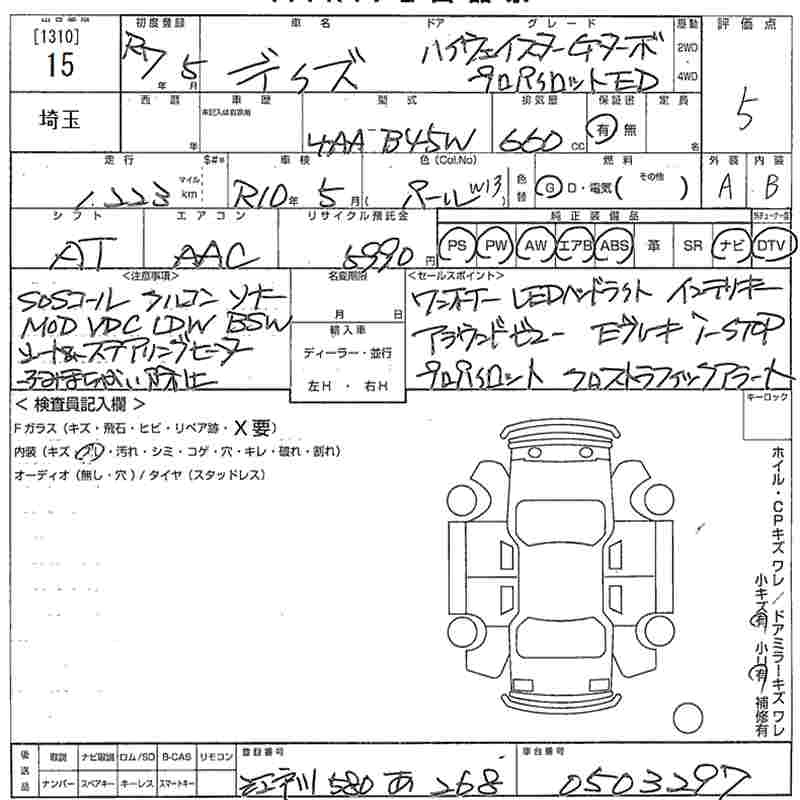 [1310]
15
埼玉
初度登録
R7年 5月
車名
デイズ
ドア グレード
ハイウェイスターGターボ
プロパイロットED
駆動
2WD
4WD
評価点
5
西暦
年
車歴
型式
4AA-B45W
排気量
660 cc
保証書
有 無
定員
名
走行
1,223
マイル
km
$#※
車検
R10年 5月
色(Col.No)
パール W13
色替
燃料
G D・電気( その他 )
外装
A
内装
B
シフト
AT
エアコン
AAC
リサイクル預託金
5990円
純正装備品
PS PW AW エアB ABS 革 SR ナビ DTV
<注意事項>
SOSコール シルコン ソナー
MOD VDC LDW BSW
シート&ステアリングヒーター
ふみまちがい防止
名変期限
月 日
輸入車
ディーラー・並行
左H ・ 右H
<セールスポイント>
ワンオーナー LEDヘッドライト インテリキー
アラウンドビュー Eブレーキ I-STOP
プロパイロット クロストラフィックアラート
<検査員記入欄>
Fガラス(キズ・飛石・ヒビ・リペア跡・X要)
内装(キズ ・汚れ・シミ・コゲ・穴・キレ・破れ・割れ)
オーディオ(無し・穴)/タイヤ(スタッドレス)
キーロック
ホイル・CPキズ ワレ/ドアミラーキズ ワレ
小キズ有 小U有 補修有
後送品
取説 ナビ取説 ロム/SD B-CAS リモコン
ナンバー スペアキー キーレス スマートキー
登録番号
江戸川 580 あ 268
車台番号
0503297